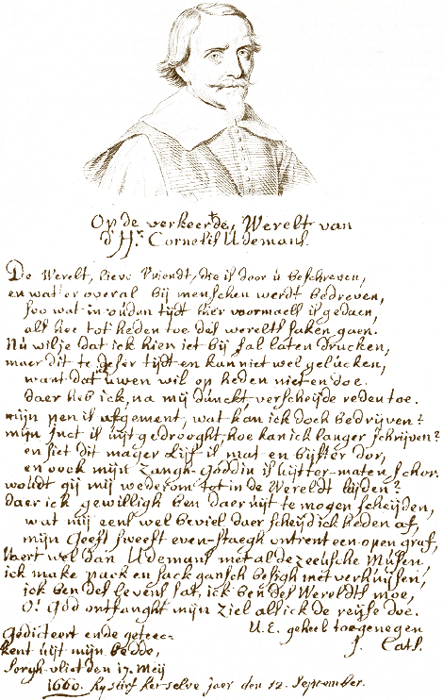 Op de verkeerde, Werelt van
d'Hr. Cornelis Udemans.
De Werelt, lieve Vriendt, die is door u beschreven,
en wat er overal bij menschen werdt bedreven,
soo wat in ouden tijdt hier voormaels is gedaen,
als hoe tot heden toe des werelts saken gaen.
Nu wil je dat ick hier iet bij sal laten drucken,
maer dit te deser tijdt en kan niet wel gelucken,
want dat ick uwen wil op heden niet en doe.
daer heb ick, na mij dunckt, verscheijde reden toe.
mijn pen is afgement, wat kan ick doch bedrijven?
mijn Inct is uijtgedrooght, hoe kan ick langer schrijven?
en siet dit mager lijf is mat en bijster dor,
en oock mijn zangh-goddin is uijtter-maten schor.
woudt gij mij wederom tot in de Wereldt leijden?
daer ick gewilligh ben daer uijt te mogen scheijden,
wat mij eens wel beviel daer scheijd ick heden af,
mijn Geest sweeft even-staegh ontrent een open graf,
Vaert wel dan Udemans met al de zeeusche Musen,
ick make pack en sack gansch besigh met verhuijsen,
ick ben des levens sat, ick ben des Wereldts moe,
O! God ontfanght mijn ziel als ick de reijse doe.
U.E. geheel toegenegen
J. Cats.
Gedicteert ende geteec-
kent uijt mijn bedde,
Sorgh-vliet den 17. Meij
1660. hij stierf her selve jaer den 12. September.